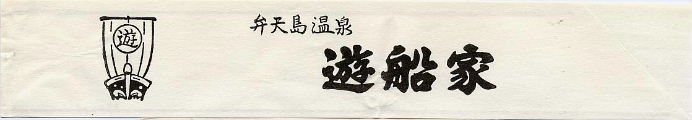 遊
弁天島温泉
遊船家